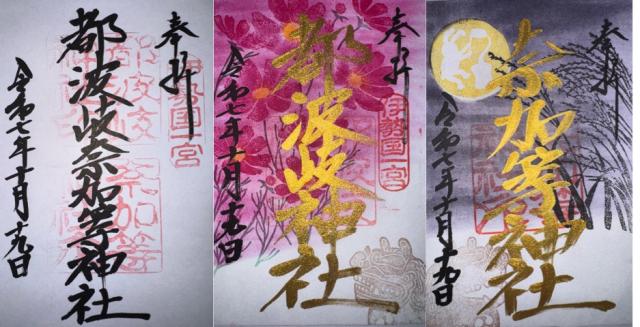 奉拝
伊勢国一宮
都波岐奈加等神社
令和七年十月十九日
奉拝
伊勢国一宮
都波岐神社
令和七年十月十九日
奉拝
奈加等神社
令和七年十月十九日